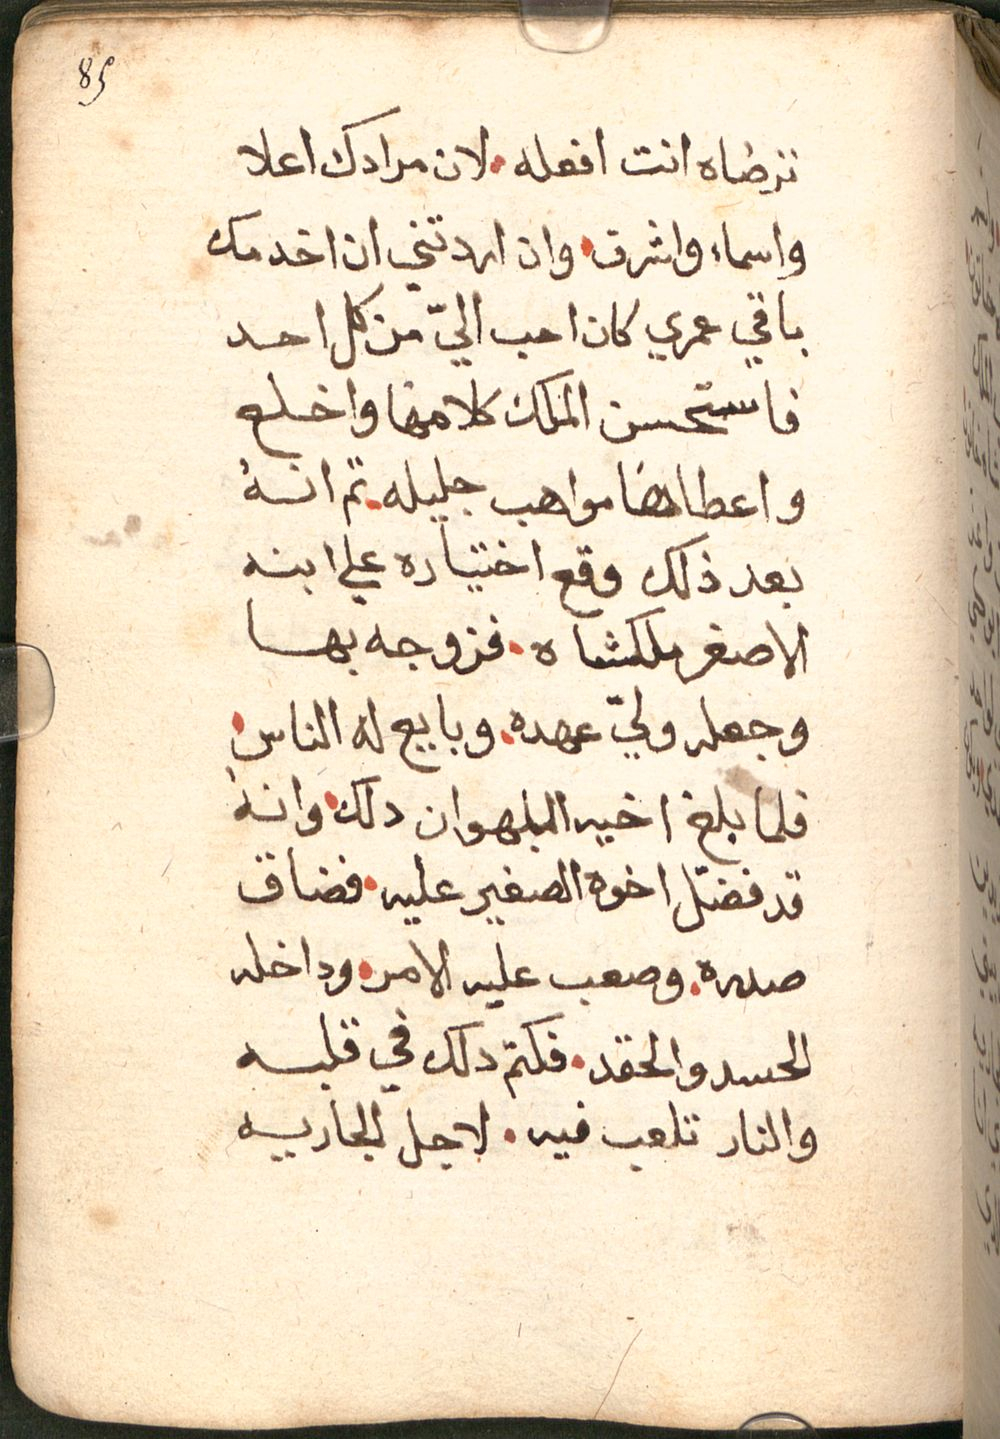 85
ترضاه انت افعله. لان مرادك اعلا
واسماء واشرف. وان اردتني ان اخدمك
باقي عمري كان احب اليّ من كل احد
فاستحسن الملك كلامها واخلع
واعطاها مواهب جليله. ثم انهُ
بعد ذلك وقع اختياره علي ابنه
الاصغر ملكشاه. فزوجه بها
وجعله وليّ عهده. وبايع له الناس.
فلما بلغ اخيه البلهوان دلك. وانهُ
قد فضّل اخوه الصغير عليه. فضاق
صدره. وصعب عليه الامر. وداخله
الحسد والحقد. فكتم دلك في قلبه
والنار تلعب فيه. لاجل الجاريه